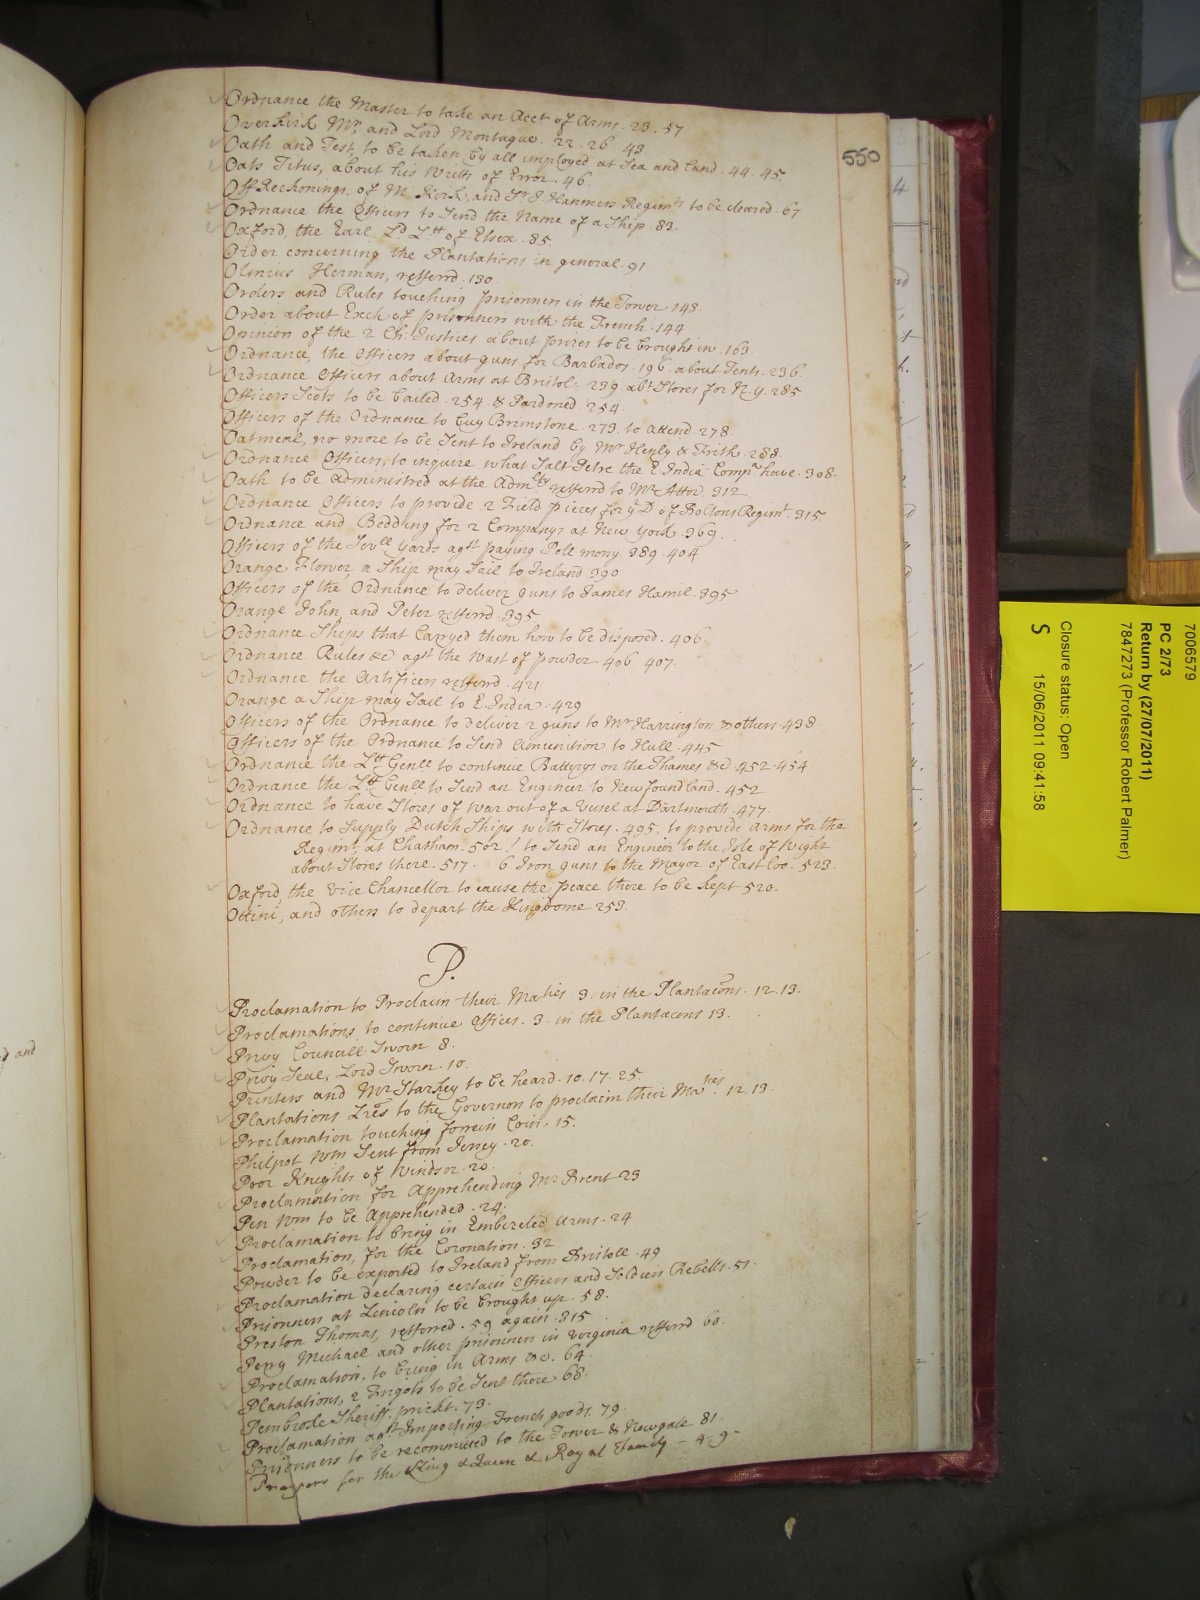 550
Ordnance the Master to take an Acct of Arms. 23. 57
Overkirk Mr. and Lord Montague. 22. 26 43
Oath and Test, to be taken by all imployed at Sea and Land. 44. 45.
Oats Titus, about his Writts of Error. 46.
Off Reckonings, of M Kirk, and Sr J. Hanmers Regimts to be cleared. 67
Ordnance the Officers to Send the Name of a Ship. 83.
Oxford, the Earl Ld Ltt of Essex. 85
Order concerning the Plantations in general. 91
Olmius Herman, referrd. 130
Orders and Rules touching prisonners in the Tower. 143.
Order about Exch of prisonners with the French. 144
Opinion of the 2 Ch: Justices about prizes to be brought in. 163.
Ordnance, the Officers about guns for Barbados. 196. about Tents. 236.
Ordnance Officers about Arms at Bristol. 239 abt Stores for N.Y. 285
Officers Scots to be bailed. 254. & Pardoned. 254.
Officers of the Ordnance to buy Brimstone. 273. to attend. 278.
Oatmeal, no more to be Sent to Ireland by Mr Henly & Frith. 288.
Ordnance Officers, to inquire what Salt Petre the E. India Compa have. 308.
Oath to be administred at the Admlty referrd to Mr Attor. 312
Ordnance Officers to provide 2 Field pieces for ye D of Boltons Regimt. 315.
Ordnance and Bedding for 2 Companys at New York. 369.
Officers of the Sevll Yards agst paying Poll mony. 389. 404
Orange Flower, a Ship may Sail to Ireland 390
Officers of the Ordnance to deliver guns to James Hamil. 395
Orange John, and Peter referrd. 395
Ordnance Ships that Carryed them how to be disposed. 406
Ordnance Rules &c agst the wast of powder. 406. 407.
Ordnance the Artificers referrd. 421
Orange a Ship may Sail to E. India. 429
Officers of the Ordnance to deliver 2 guns to Mr Harrington & others. 438
Officers of the Ordnance to Send Amunition to Hull. 445
Ordnance the Ltt Genll to continue Batterys on the Thames &c. 452. 454
Ordnance the Ltt Genll to Send an Engineer to Newfoundland. 452
Ordnance to have Stores of War out of a Vessel at Dartmouth. 477
Ordnance to Supply Dutch Ships with Stores. 495, to provide Arms for the
Regimt. at Chatham. 502. to Send an Engineer to the Isle of Wight
about Stores there. 517. 6 Iron guns to the Mayor of East Loo. 523.
Oxford, the Vice Chancellor to cause the peace there to be kept 520.
Ottini, and others to depart the Kingdome. 253.
P.
Proclamation to Proclaim their Maties 3. in the Plantacons. 12. 13.
Proclamations to continue Offices. 3. in the Plantacons 13.
Privy Councill Sworn 8.
Privy Seal, Lord Sworn. 10.
Printers and Mr Starkey to be heard. 10. 17. 25.
Plantations Lres to the Governors to proclaim their Maties. 12. 13.
Proclamation touching forrein Coin. 15.
Philpot Wm Sent from Jersey. 20.
Poor Knights of Windsor. 20.
Proclamation for Apprehending Mr Brent 23
Pen Wm to be Apprehended. 24.
Proclamation to bring in Embezeled Arms. 24
Proclamation, for the Coronation. 32
Powder to be exported to Ireland from Bristoll. 49
Proclamation declaring certain Officers and Soldiers Rebells. 51.
Prisonners at Lincoln to be brought up. 58.
Preston Thomas, referred. 59 again. 315
Perry Michael and other prisonners in Virginia referrd 60.
Proclamation, to bring in Arms &c. 64.
Plantations, 2 Frigots to be Sent there 68.
Pembroke Sheriff, prickt. 73.
Proclamation agst Importing French goods. 79.
Prisonners to be recommitted to the Tower & Newgate 81.
Prayers for the King & Queen & Royal Family - 4. 9 -
d and
7006579
PC 2/73
Return by (27/07/2011)
7847273 (Professor Robert Palmer)
Closure status: Open
S 15/06/2011 09:41:58